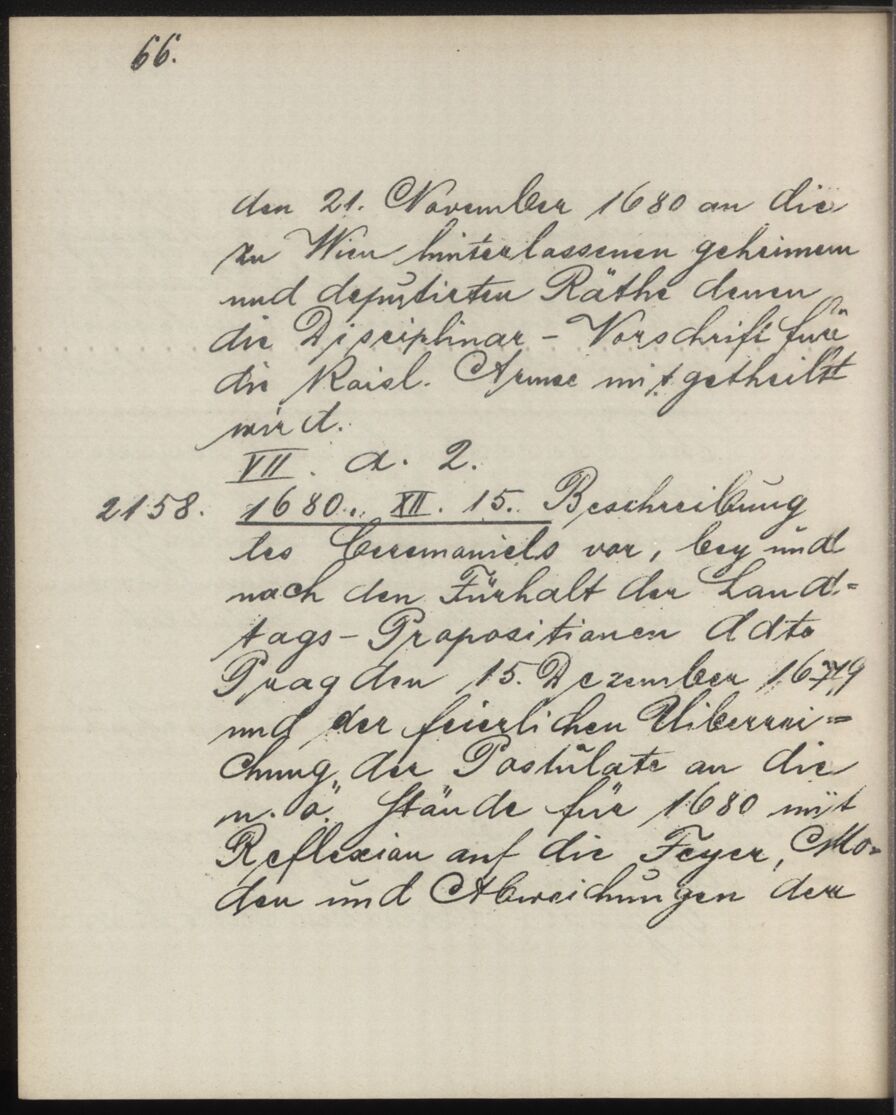 66.
den 21. November 1680 an die
zu Wien hinterlassenen geheimen
und deputirten Räthe denen
die Disciplinar - Vorschrift für
die Kaisl. Armee mitgetheilt
wird.
VII. a. 2.
2158. 1680. XII. 15. Beschreibung
des Ceremoniels vor, bey und
nach den Fürhalt der Land=
tags - Propositionen ddto
Prag den 15. Dezember 1679
und der feierlichen Uiberrei=
chung der Postulate an die
n. ö. Stände für 1680 mit
Reflexion auf die Feyer, Mo=
den und Abweichungen der